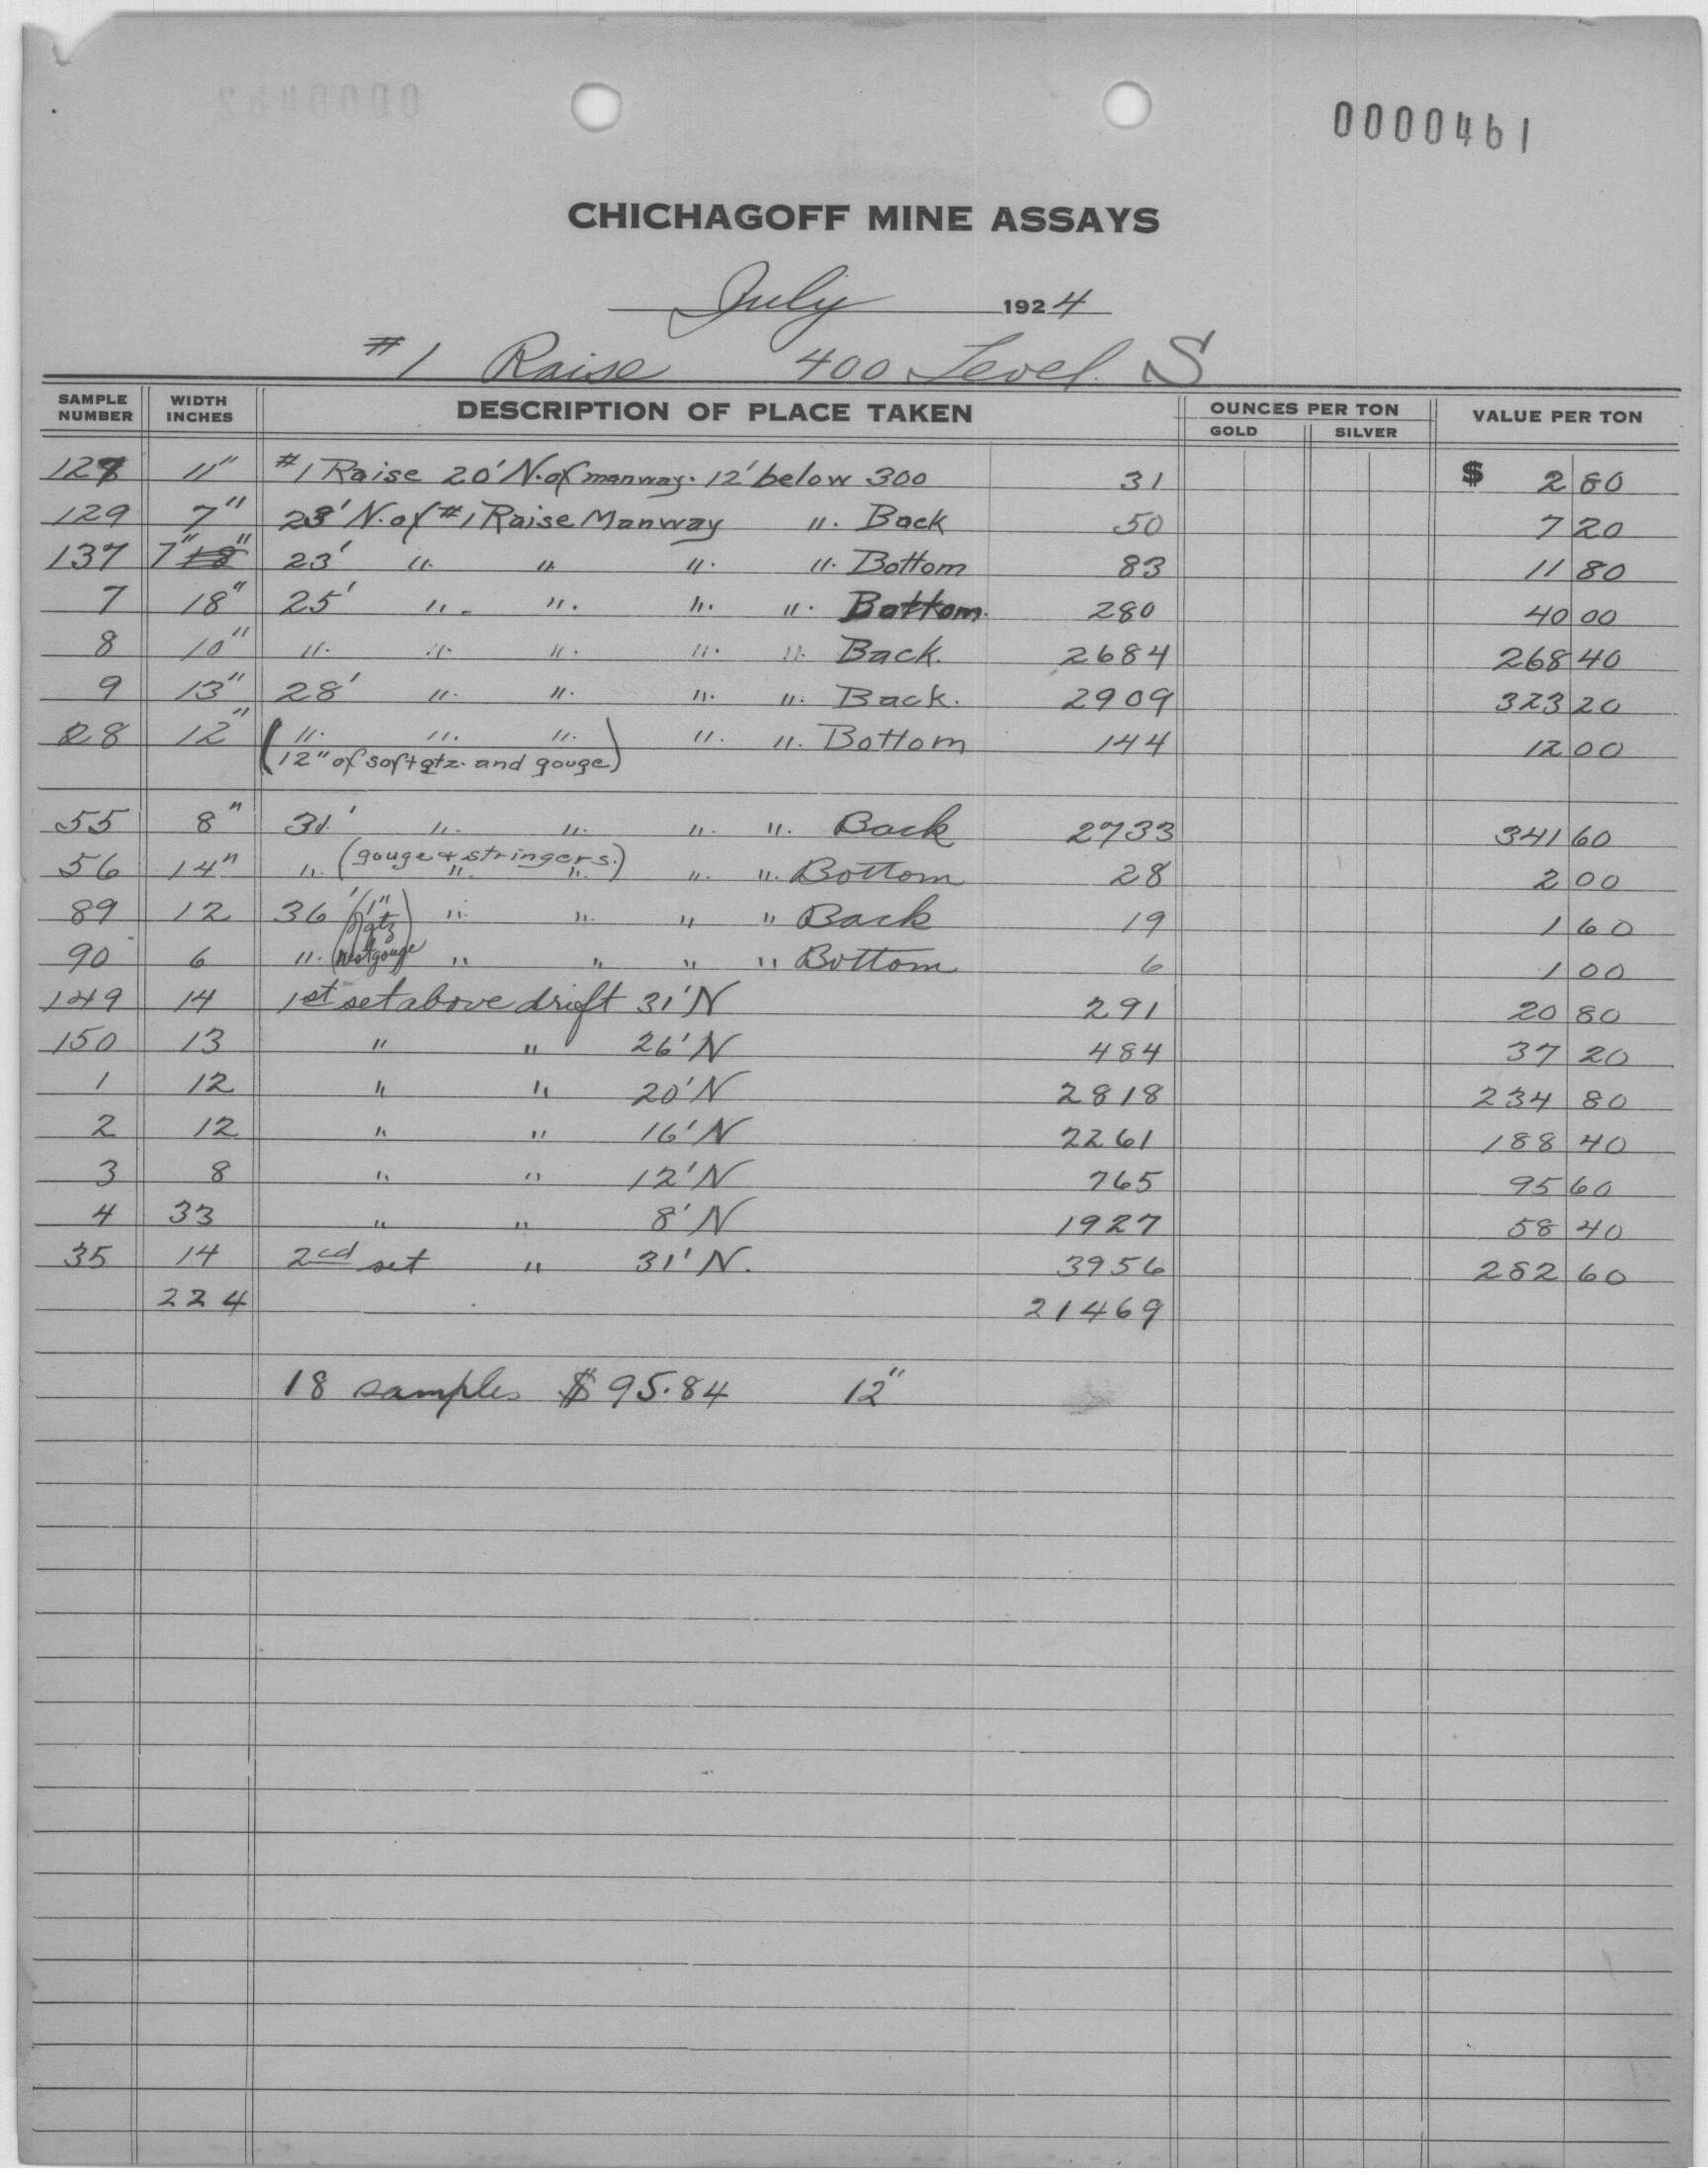 0000461
CHICHAGOFF MINE ASSAYS
July 1924
#1 Raise 400 Level. S
SAMPLE NUMBER WIDTH INCHES DESCRIPTION OF PLACE TAKEN OUNCES PER TON GOLD SILVER VALUE PER TON
127 11" #1 Raise 20' N. of manway. 12' below 300 31 $ 2 80
129 7" 23' N. of #1 Raise Manway ". Back 50 7 20
137 7" 23' " " " ". Bottom 83 11 80
7 18" 25' " " " ". Bottom. 280 40 00
8 10" " " " " " Back. 2684 268 40
9 13" 28' " " " " Back. 2909 323 20
28 12" (" " " " " Bottom 144 12 00
12" of soft qtz. and gouge)
55 8" 31' " " " " Back 2733 341 60
(gouge & stringers.)
56 14" " " " " " Bottom 28 2 00
89 12 36' (1" of qtz) " " " " Back 19 1 60
90 6 " ( gouge " " " " Bottom 6 1 00
149 14 1st set above drift 31' N 291 20 80
150 13 " " 26' N 484 37 20
1 12 " " 20' N 2818 234 80
2 12 " " 16' N 2261 188 40
3 8 " " 12' N 765 95 60
4 33 " " 8' N 1927 58 40
35 14 2cd set " 31' N. 3956 282 60
224 21469
18 samples $95.84 12"